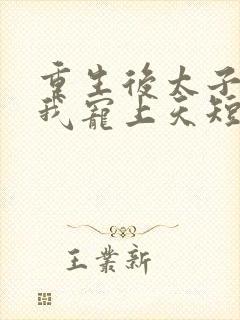 重生後太子
我寵上天短
王業新